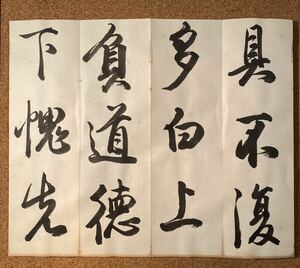 具不復
多白上
負道德
下愧先